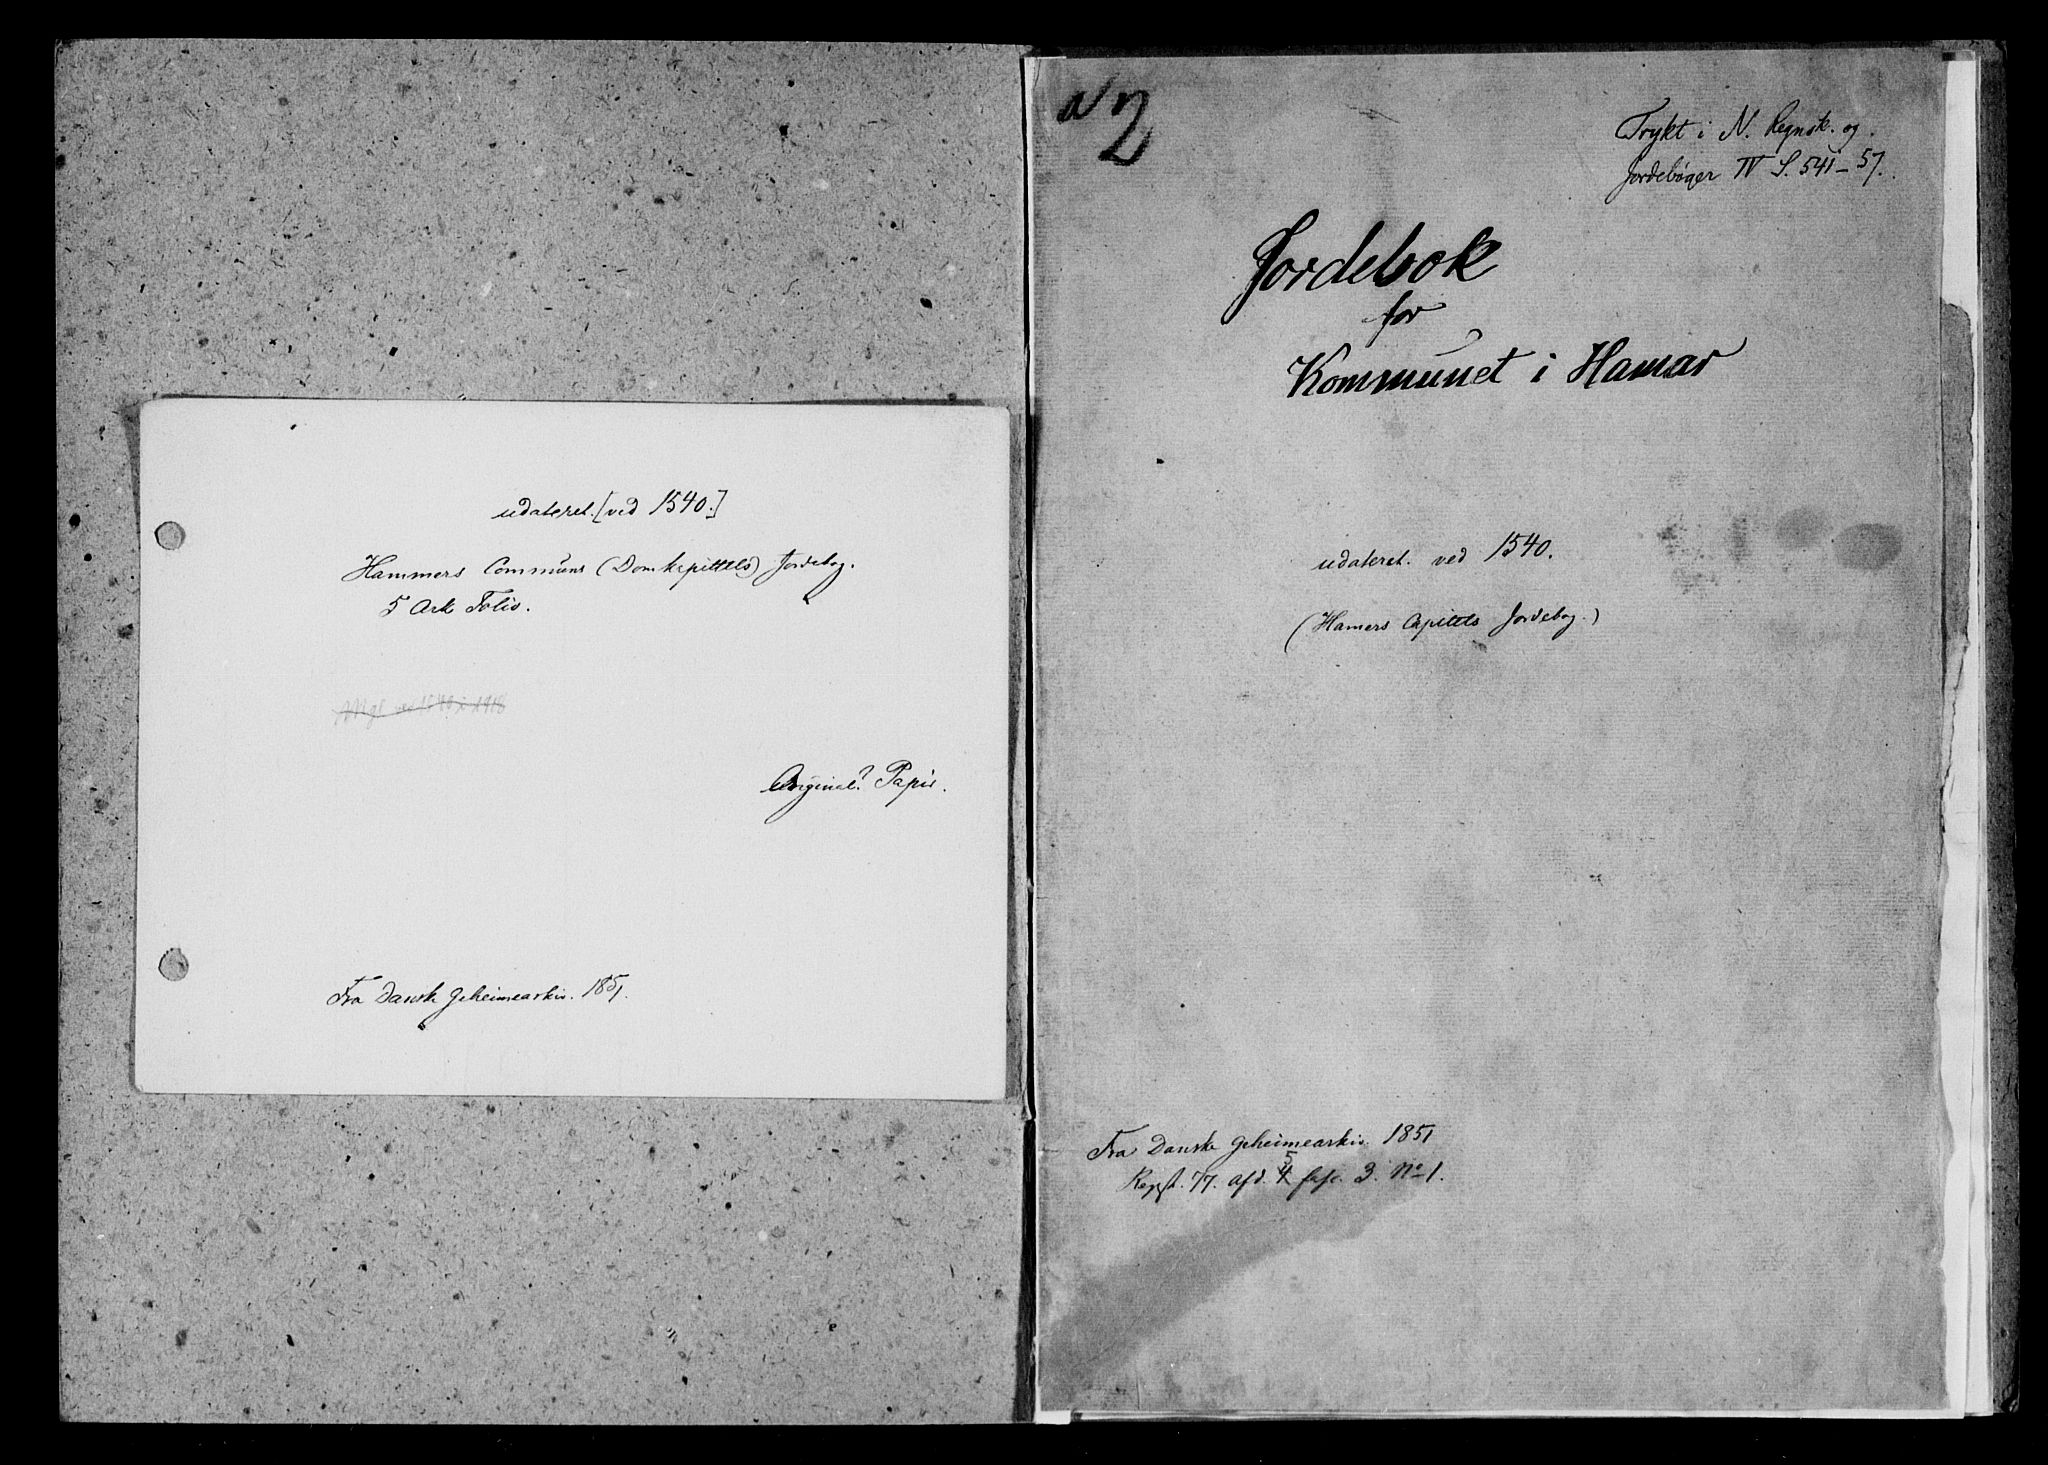 udateret. [ved 1540.]
Hammers Communs (Domkapittels) Jordebog.
5 Ark Folio.
Original? Papir.
Fra Danske Geheimearkiv. 1851.
a 2
Trykt i N. Regnsk. og
Jordebøger IV S. 541–57.
Jordebok
for
Kommunet i Hamar
udateret. ved 1540.
(Hamers Capitels Jordebog.)
Fra Danske Geheimearkiv. 1851
5
Regist. 77. afd. 4 fasc. 3. No 1.